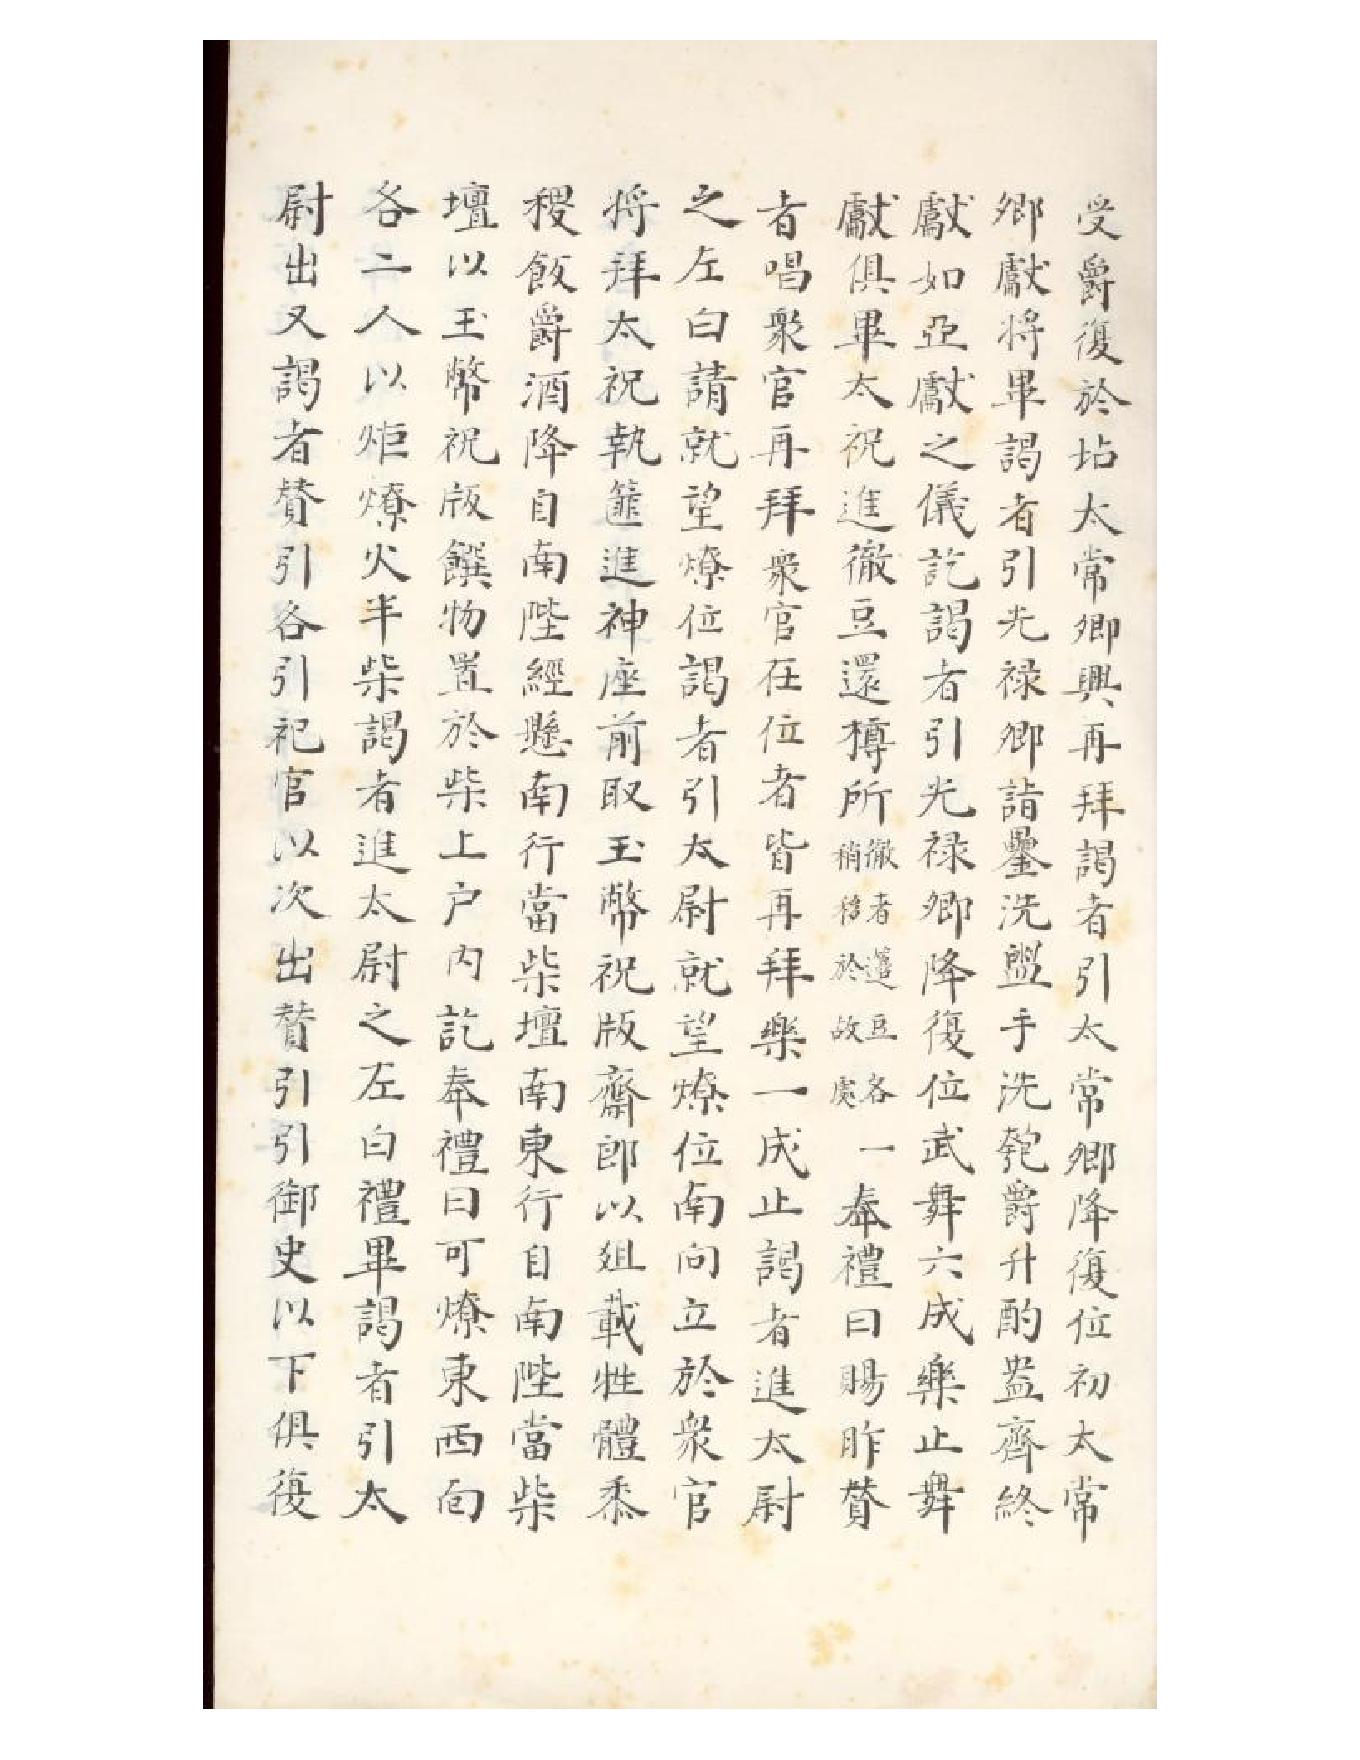 受爵復於坫太常卿興再拜謁者引太常卿降復位初太常
卿獻将畢謁者引光禄卿詣罍洗盥手洗匏爵升酌盎齊終
獻如亞獻之儀訖謁者引光禄卿降復位武舞六成樂止舞
獻俱畢太祝進徹豆還樽所徹者籩豆各稍移於故處一奉禮曰賜胙賛
者唱衆官再拜衆官在位者皆再拜樂一成止謁者進太尉
之左白請就望燎位謁者引太尉就望燎位南向立於衆官
将拜太祝執篚進神座前取玉幣祝版齋郎以俎載牲體黍
稷飯爵酒降自南陛經懸南行當柴壇南東行自南陛當柴
壇以玉幣祝版饌物置於柴上户内訖奉禮曰可燎東西面
各二人以炬燎火半柴謁者進太尉之左白禮畢謁者引太
尉出又謁者賛引各引祀官以次出賛引引御史以下俱復